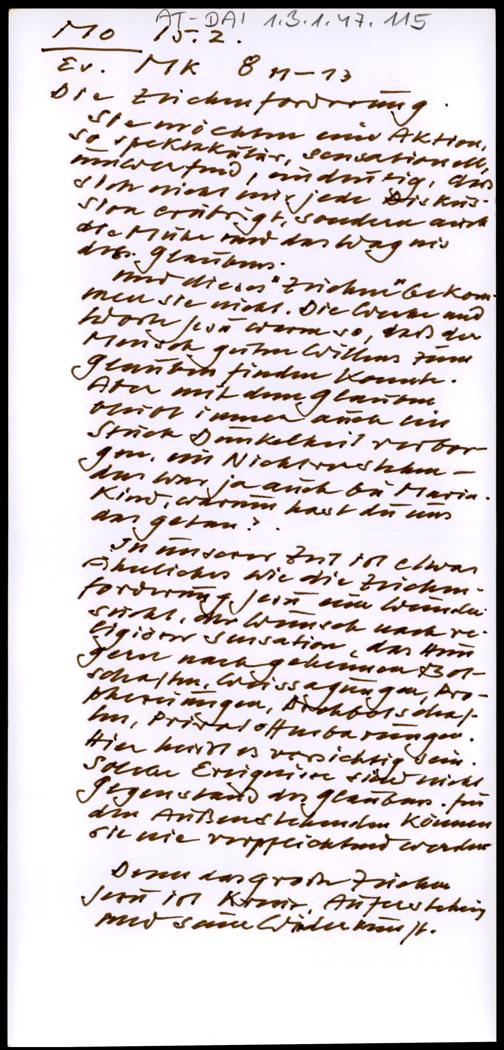 AT-DAI 1.3.1.47.115
Mo 15.2.
Ev. Mk 8 11-13
Die Zeichenforderung.
Sie möchten eine Aktion,
so spektakulär, sensationell,
umwerfend, eindeutig, daß
sich nicht nur jede Diskus-
sion erübrigt, sondern auch
die Mühe und das Wagnis
des Glaubens.
Und dieses "Zeichen" bekom-
men sie nicht. Die Werke und
Worte Jesu waren so, daß der
Mensch guten Willens zum
Glauben finden konnte.
Aber mit dem Glauben
bleibt immer auch ein
Stück Dunkelheit verbor-
gen, ein Nichtverstehen -
das war ja auch bei Maria.
Kind, warum hast du uns
das getan?
In unserer Zeit ist etwas
Ähnliches wie die Zeichen-
forderung Jesu eine Wunder-
sucht, der Wunsch nach re-
ligiöser Sensation, das Hun-
gern nach geheimen Bot-
schaften, Weissagungen, Pro-
phezeiungen, Droh­botschaf-
ten, Privatoffenbarungen.
Hier heißt es vorsichtig sein.
Solche Ereignisse sind nicht
Gegenstand des Glaubens. Für
den Außenstehenden können
sie nie verpflichtend werden
Denn das große Zeichen
Jesu ist Kreuz, Auferstehung
und seine Wiederkunft.